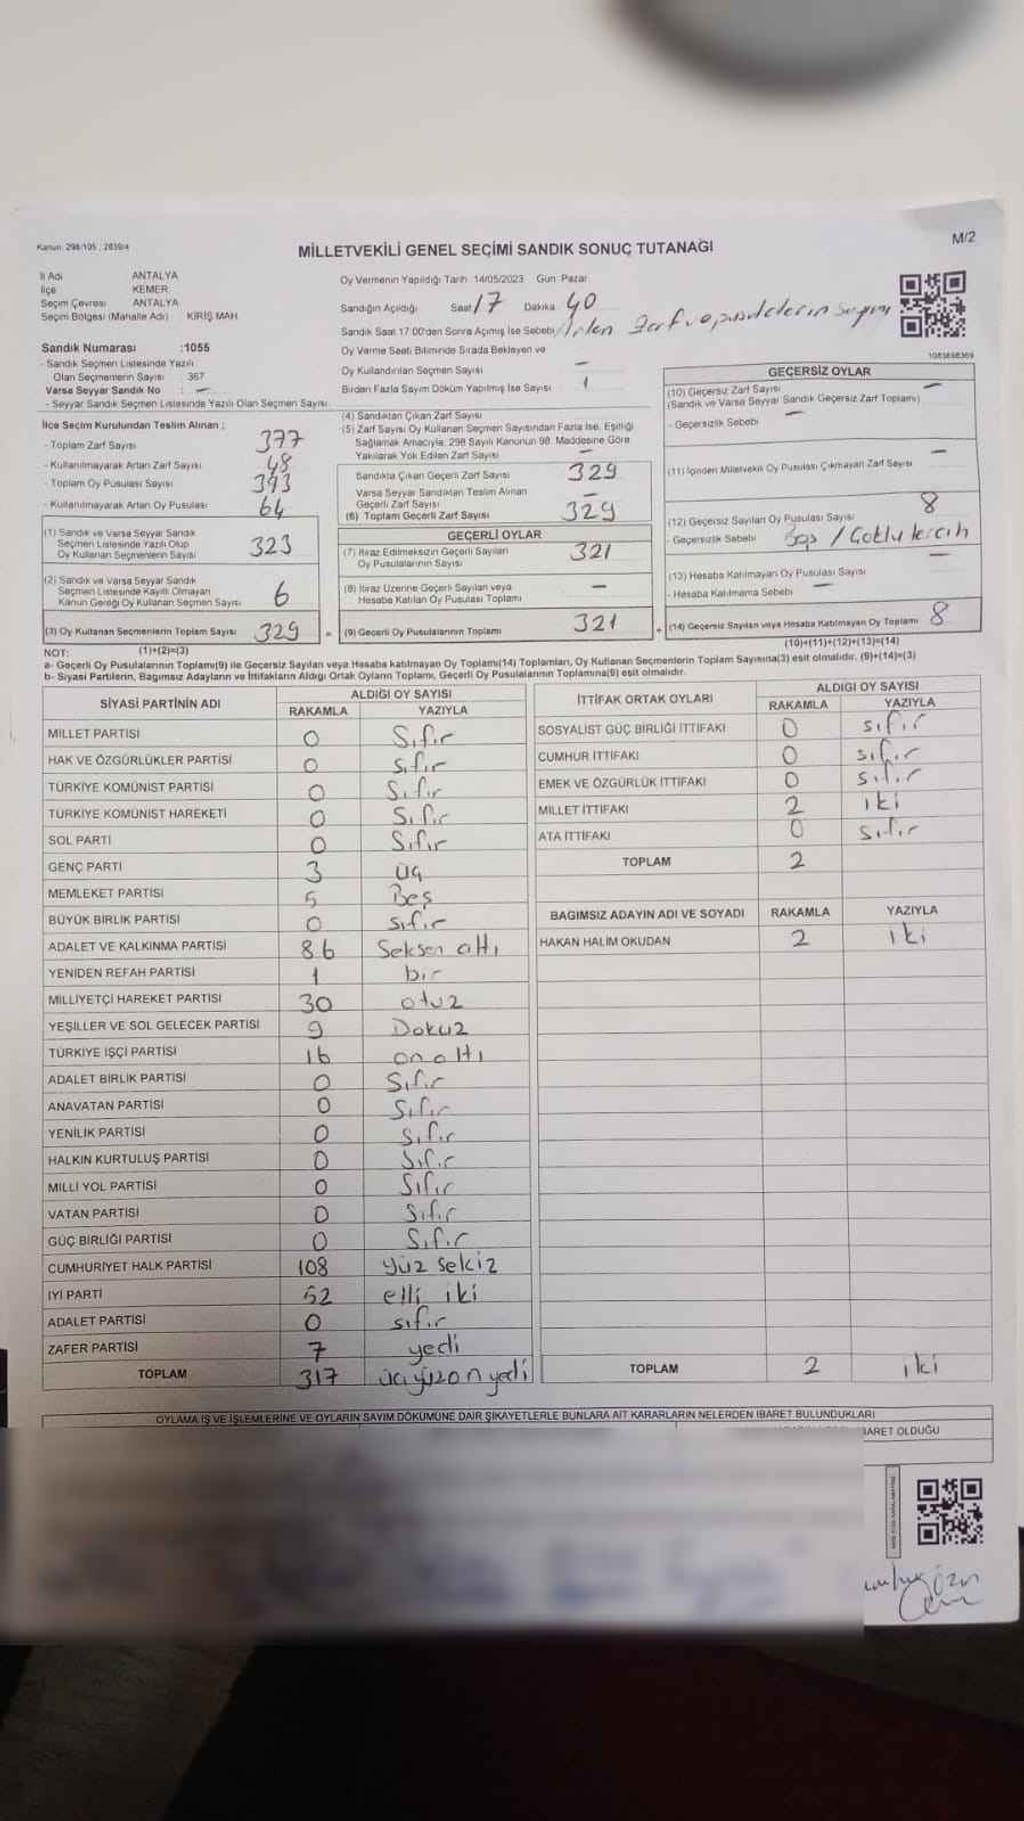 Kanun: 298/105 ; 2839/4
M/2
MİLLETVEKİLİ GENEL SEÇİMİ SANDIK SONUÇ TUTANAĞI
İl Adı ANTALYA
İlçe KEMER
Seçim Çevresi ANTALYA
Seçim Bölgesi (Mahalle Adı) KİRİŞ MAH
Sandık Numarası :1055
- Sandık Seçmen Listesinde Yazılı
Olan Seçmenlerin Sayısı 367
Varsa Seyyar Sandık No : —
- Seyyar Sandık Seçmen Listesinde Yazılı Olan Seçmen Sayısı
Oy Vermenin Yapıldığı Tarih 14/05/2023 Gün Pazar
Sandığın Açıldığı Saat 17 Dakika 40
Sandık Saat 17 00'den Sonra Açmış İse Sebebi zarf ve pusulaların sayımı
Oy Verme Saati Bitiminde Sırada Bekleyen ve
Oy Kullandırılan Seçmen Sayısı —
Birden Fazla Sayım Döküm Yapılmış İse Sayısı 1
1083698369
İlçe Seçim Kurulundan Teslim Alınan ;
- Toplam Zarf Sayısı 377
- Kullanılmayarak Artan Zarf Sayısı 48
- Toplam Oy Pusulası Sayısı 393
- Kullanılmayarak Artan Oy Pusulası 64
(1) Sandık ve Varsa Seyyar Sandık
Seçmen Listesinde Yazılı Olup
Oy Kullanan Seçmenlerin Sayısı 323
(2) Sandık ve Varsa Seyyar Sandık
Seçmen Listesinde Kayıtlı Olmayan
Kanun Gereği Oy Kullanan Seçmen Sayısı 6
(3) Oy Kullanan Seçmenlerin Toplam Sayısı 329
(4) Sandıktan Çıkan Zarf Sayısı
(5) Zarf Sayısı Oy Kullanan Seçmen Sayısından Fazla İse, Eşitliği
Sağlamak Amacıyla; 298 Sayılı Kanunun 98. Maddesine Göre
Yakılarak Yok Edilen Zarf Sayısı —
Sandıkta Çıkan Geçerli Zarf Sayısı 329
Varsa Seyyar Sandıktan Teslim Alınan
Geçerli Zarf Sayısı —
(6) Toplam Geçerli Zarf Sayısı 329
GEÇERLİ OYLAR
(7) İtiraz Edilmeksizin Geçerli Sayılan
Oy Pusulalarının Sayısı 321
(8) İtiraz Üzerine Geçerli Sayılan veya
Hesaba Katılan Oy Pusulası Toplamı —
= (9) Geçerli Oy Pusulalarının Toplamı 321
GEÇERSİZ OYLAR
(10) Geçersiz Zarf Sayısı —
(Sandık ve Varsa Seyyar Sandık Geçersiz Zarf Toplamı)
- Geçersizlik Sebebi —
(11) İçinden Milletvekili Oy Pusulası Çıkmayan Zarf Sayısı —
(12) Geçersiz Sayılan Oy Pusulası Sayısı 8
- Geçersizlik Sebebi Boş / Çoklu tercih
(13) Hesaba Katılmayan Oy Pusulası Sayısı —
- Hesaba Katılmama Sebebi —
+ (14) Geçersiz Sayılan veya Hesaba Katılmayan Oy Toplamı 8
NOT: (1)+(2)=(3)
(10)+(11)+(12)+(13)=(14)
a- Geçerli Oy Pusulalarının Toplamı(9) ile Geçersiz Sayılan veya Hesaba katılmayan Oy Toplamı(14) Toplamları, Oy Kullanan Seçmenlerin Toplam Sayısına(3) esit olmalıdır. (9)+(14)=(3)
b- Siyasi Partilerin, Bagımsız Adayların ve İttifakların Aldığı Ortak Oyların Toplamı, Geçerli Oy Pusulalarının Toplamına(9) esit olmalıdır.
SİYASİ PARTİNİN ADI ALDIĞI OY SAYISI
RAKAMLA YAZIYLA
MİLLET PARTİSİ 0 Sıfır
HAK VE ÖZGÜRLÜKLER PARTİSİ 0 Sıfır
TÜRKİYE KOMÜNİST PARTİSİ 0 Sıfır
TÜRKİYE KOMÜNİST HAREKETİ 0 Sıfır
SOL PARTİ 0 Sıfır
GENÇ PARTİ 3 üç
MEMLEKET PARTİSİ 5 Beş
BÜYÜK BİRLİK PARTİSİ 0 sıfır
ADALET VE KALKINMA PARTİSİ 86 Seksen altı
YENİDEN REFAH PARTİSİ 1 bir
MİLLİYETÇİ HAREKET PARTİSİ 30 otuz
YEŞİLLER VE SOL GELECEK PARTİSİ 9 Dokuz
TÜRKİYE İŞÇİ PARTİSİ 16 on altı
ADALET BİRLİK PARTİSİ 0 Sıfır
ANAVATAN PARTİSİ 0 Sıfır
YENİLİK PARTİSİ 0 Sıfır
HALKIN KURTULUŞ PARTİSİ 0 Sıfır
MİLLİ YOL PARTİSİ 0 Sıfır
VATAN PARTİSİ 0 Sıfır
GÜÇ BİRLİĞİ PARTİSİ 0 Sıfır
CUMHURİYET HALK PARTİSİ 108 yüz sekiz
İYİ PARTİ 52 elli iki
ADALET PARTİSİ 0 sıfır
ZAFER PARTİSİ 7 yedi
TOPLAM 317 üçyüzon yedi
İTTİFAK ORTAK OYLARI ALDIĞI OY SAYISI
RAKAMLA YAZIYLA
SOSYALİST GÜÇ BİRLİĞİ İTTİFAKI 0 sıfır
CUMHUR İTTİFAKI 0 sıfır
EMEK VE ÖZGÜRLÜK İTTİFAKI 0 sıfır
MİLLET İTTİFAKI 2 iki
ATA İTTİFAKI 0 sıfır
TOPLAM 2
BAGIMSIZ ADAYIN ADI VE SOYADI RAKAMLA YAZIYLA
HAKAN HALİM OKUDAN 2 iki
TOPLAM 2 iki
OYLAMA İŞ VE İŞLEMLERİNE VE OYLARIN SAYIM DÖKÜMÜNE DAİR ŞİKAYETLERLE BUNLARA AİT KARARLARIN NELERDEN İBARET BULUNDUKLARI
BARET OLDUĞU